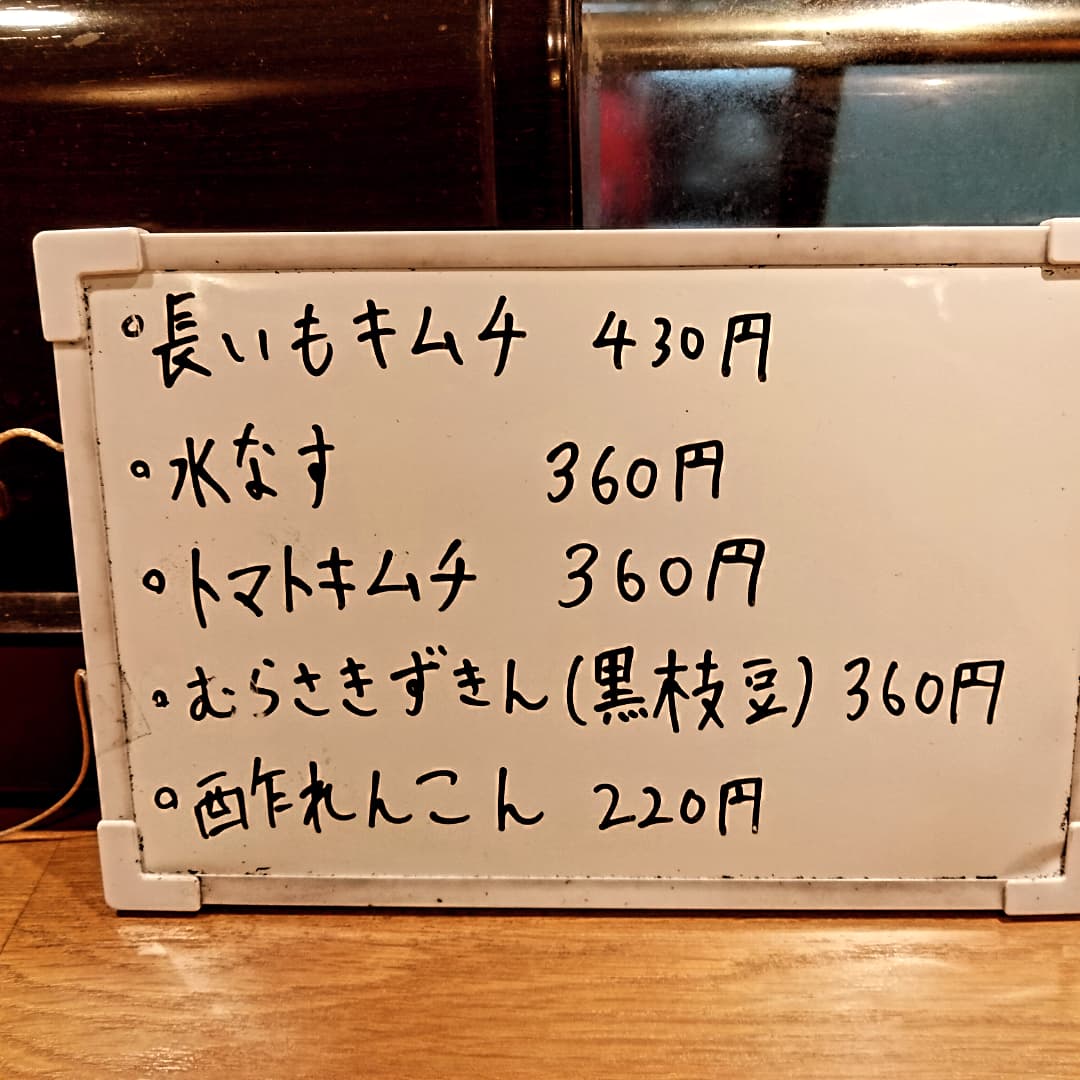 。長いもキムチ 430円
。水なす 360円
。トマトキムチ 360円
。むらさきずきん(黒枝豆) 360円
。酢れんこん 220円